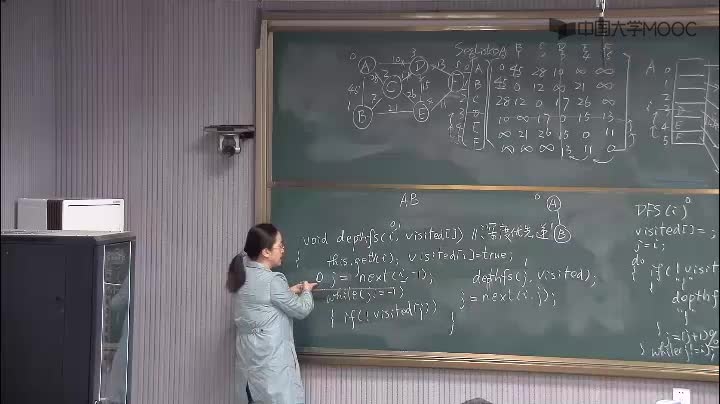 中国大学MOOC
SeqList
A
B
C
D
E
F
0 45 28 10 ∞ ∞
45 0 12 ∞ 21 ∞
28 12 0 17 26 ∞
10 ∞ 17 0 15 13
∞ 21 26 15 0 11
∞ ∞ ∞ 13 11 0
AB
void depthfs(i, visited[]) //深度优先遍
{
this.get(i); visited[i]=true;
j = next(i,-1);
while(j!=-1)
{ if(!visited[j])
depthfs(j, visited);
j = next(i,j);
}
DFS(i)
visited[]= ;
j=i;
do
{ if(!visit
depthf
j=(j+1)%
} while(j!=i);